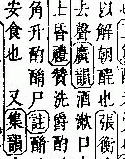 以解朝酲也張衡
上聲廣韻酒漱口
士昏禮贊洗爵酌
角升酌酳尸註酳
安食也又集韻